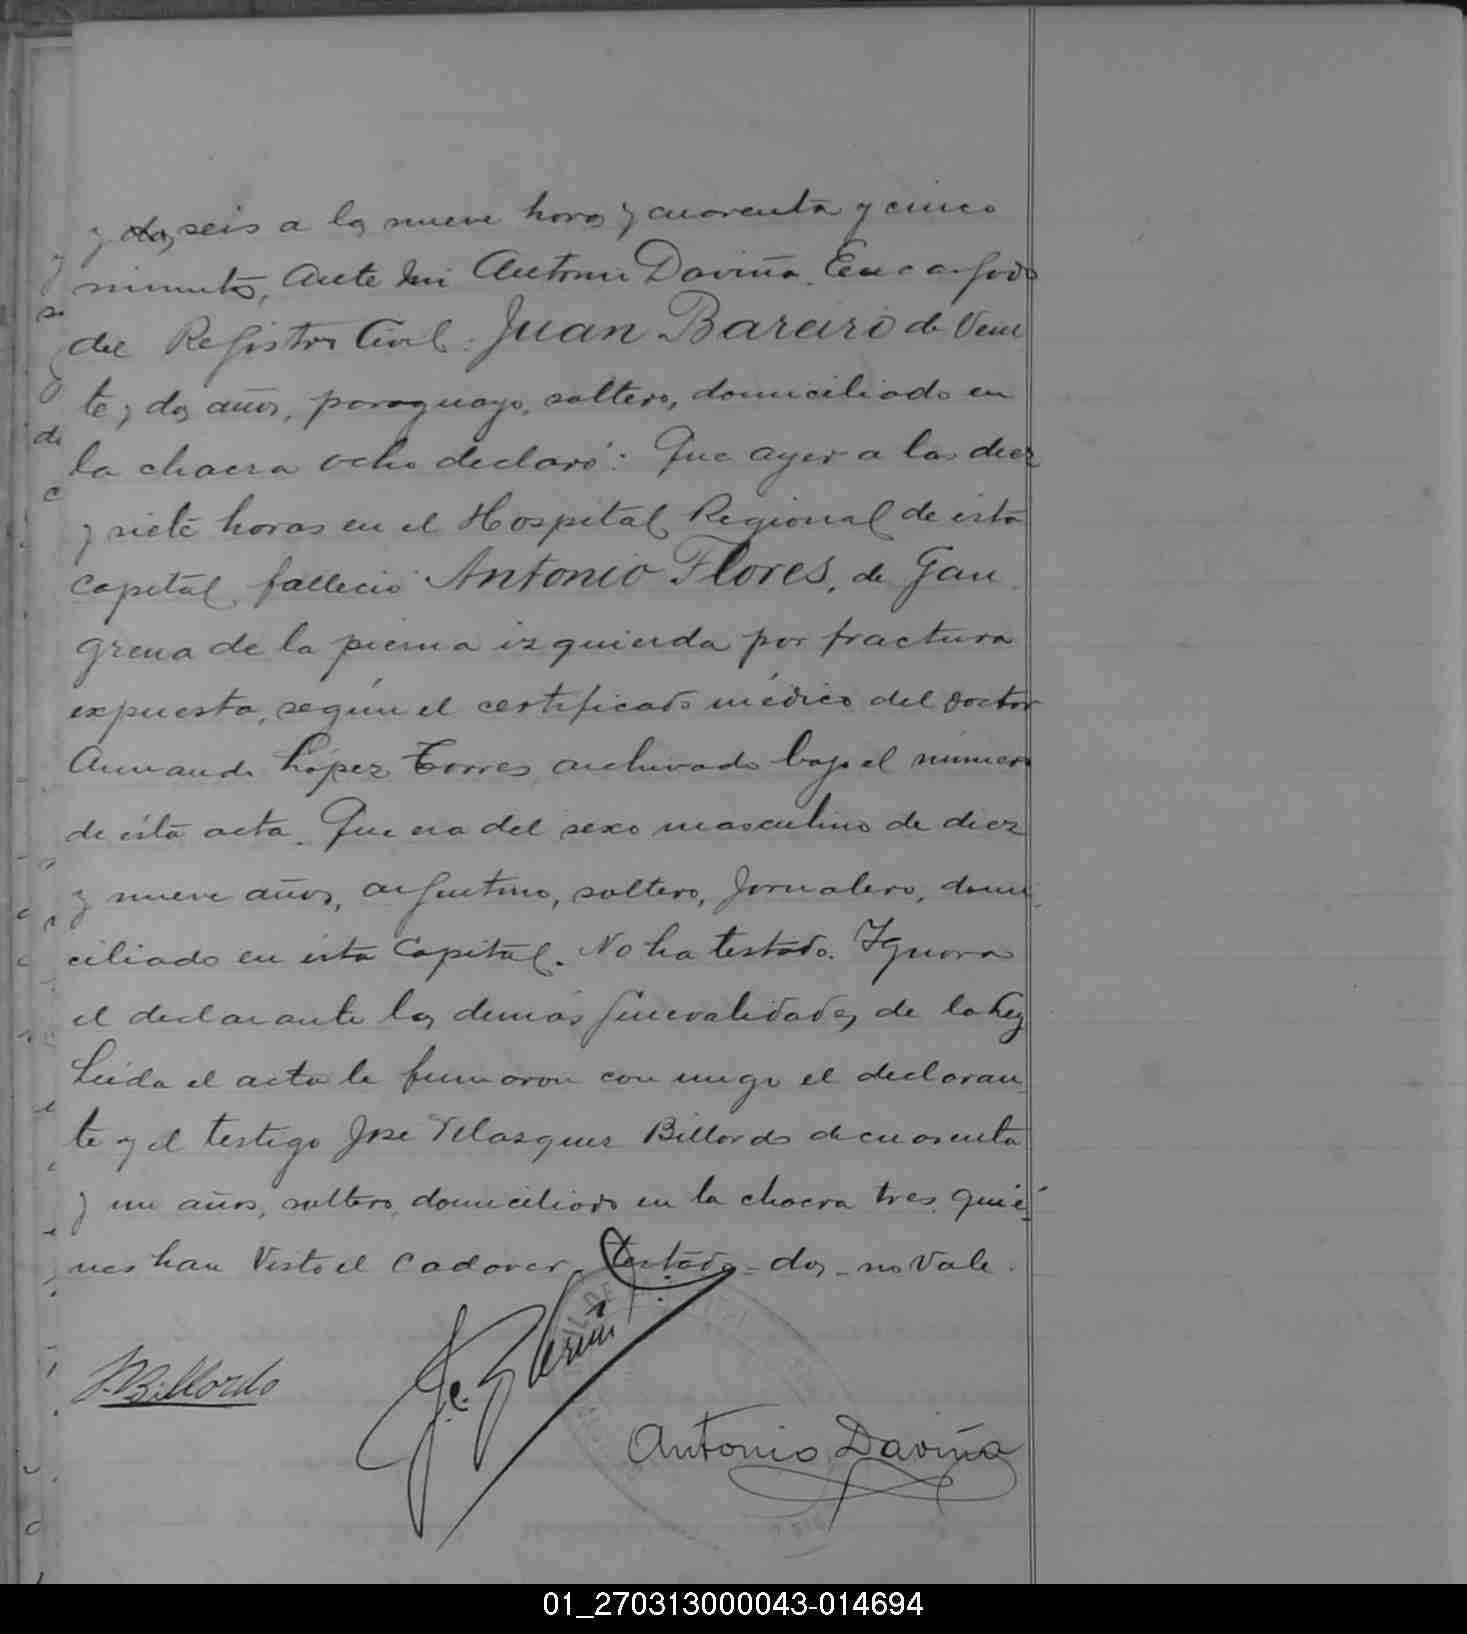 y dos seis a las nueve horas y cuarenta y cinco
minutos, Ante mi Antonio Daviña. Encargado
del Registro Civil: Juan Bareiro de Vein
te y dos años, paraguayo, soltero, domiciliado en
la chacra ocho declaró: Que ayer a las diez
y siete horas en el Hospital Regional de esta
Capital falleció Antonio Flores, de Gan
grena de la pierna izquierda por fractura
expuesta, según el certificado médico del Doctor
Armando López Torres archivado bajo el número
de ésta acta. Que era del sexo masculino de diez
y nueve años, argentino, soltero, Jornalero, domi
ciliado en ésta Capital. No ha testado. Ignora
el declarante las demás generalidades de la Ley
Leída el acta la firmaron con migo el declaran
te y el testigo José Velasquez Billordo de cuarenta
y un años, soltero, domiciliado en la chacra tres, quié-
nes han Visto el Cadaver. Testado-dos-no Vale.
J.V. Billordo
Antonio Daviña
01_270313000043-014694